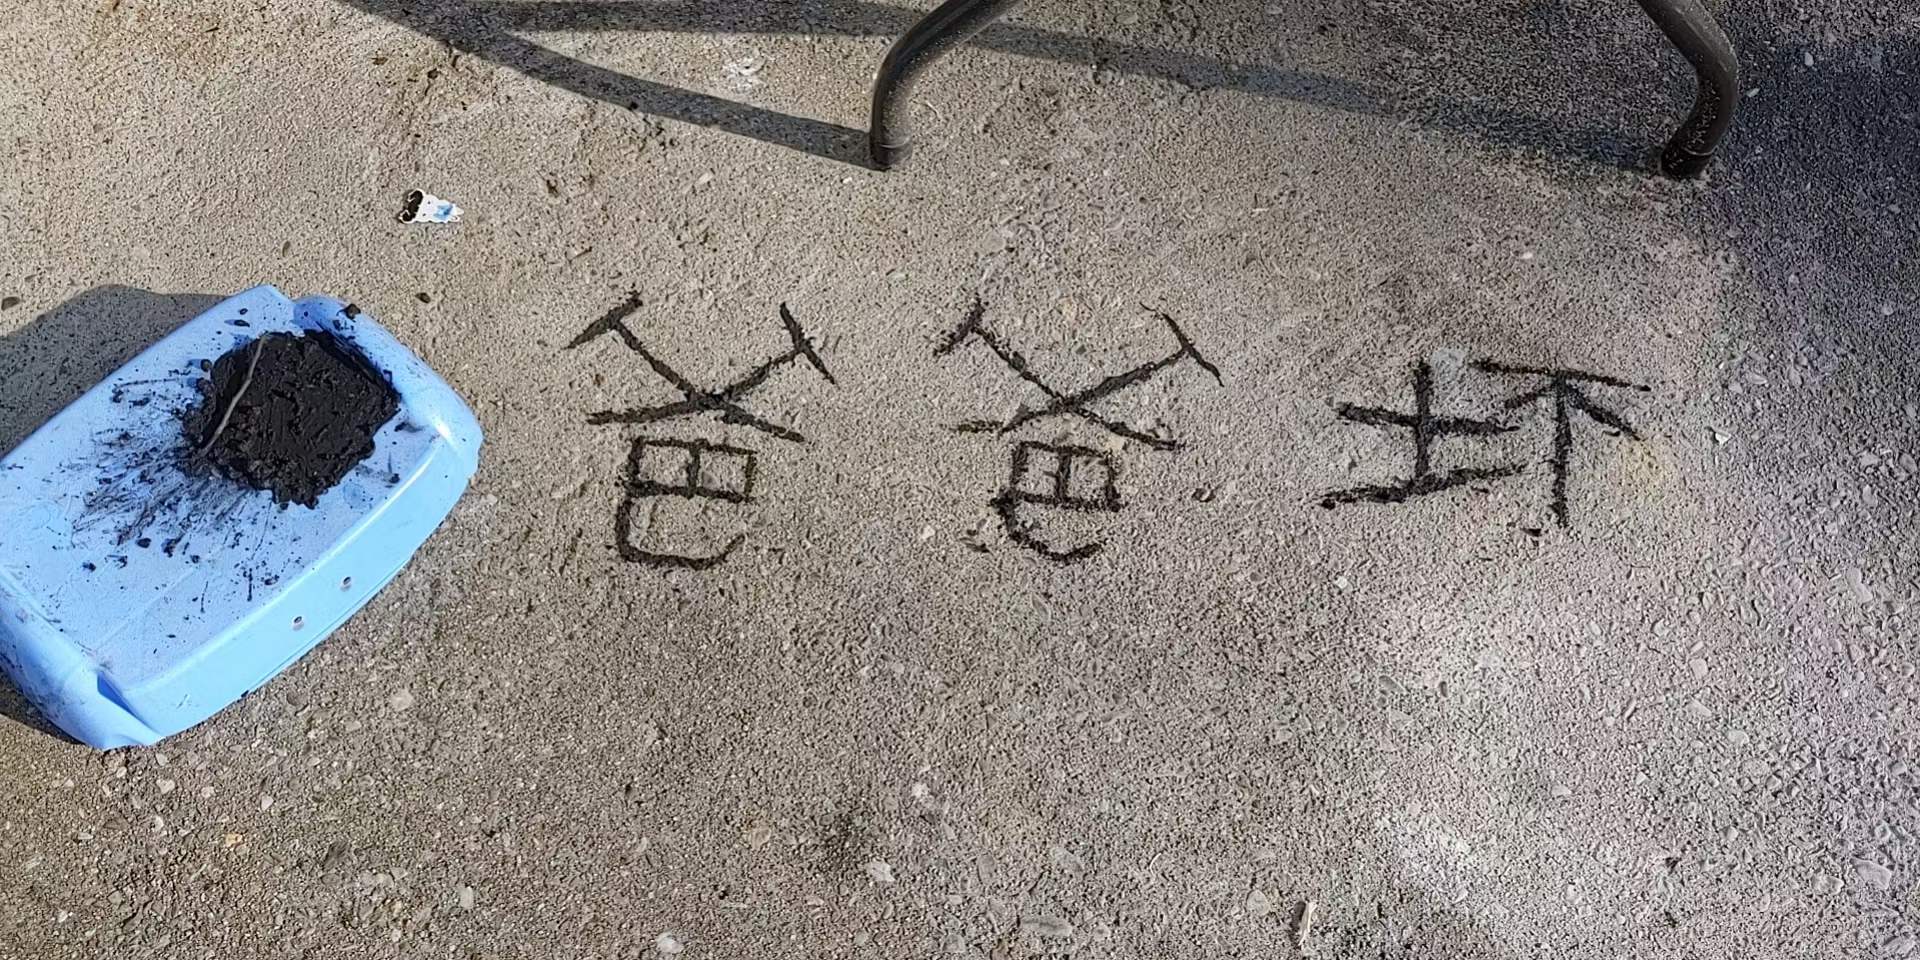 爸爸坏